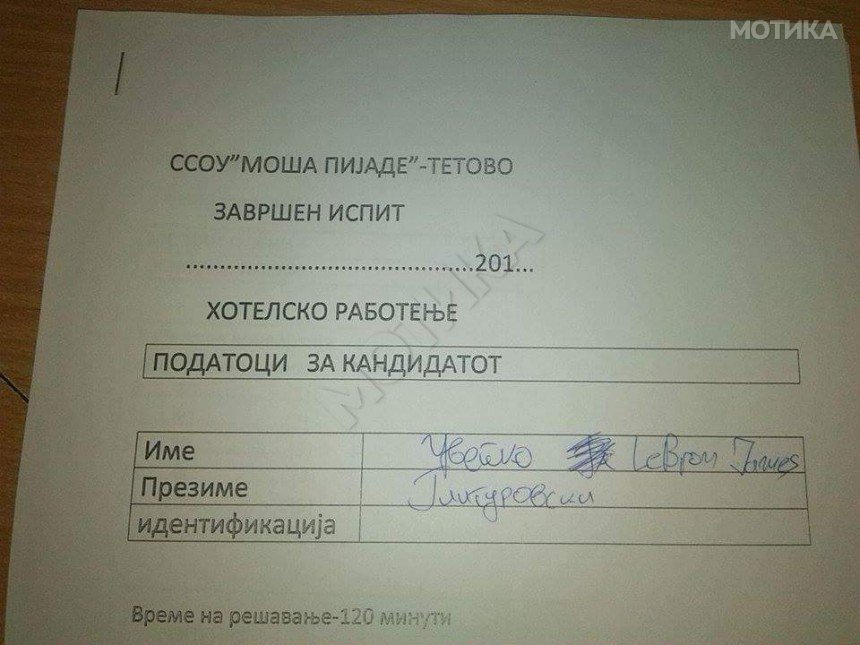 МОТИКА
ССОУ”МОША ПИЈАДЕ”-ТЕТОВО
ЗАВРШЕН ИСПИТ
...........................................201...
ХОТЕЛСКО РАБОТЕЊЕ
МОТИКА
ПОДАТОЦИ ЗА КАНДИДАТОТ
Име Цветко LeBron James
Презиме
идентификација
Време на решавање-120 минути